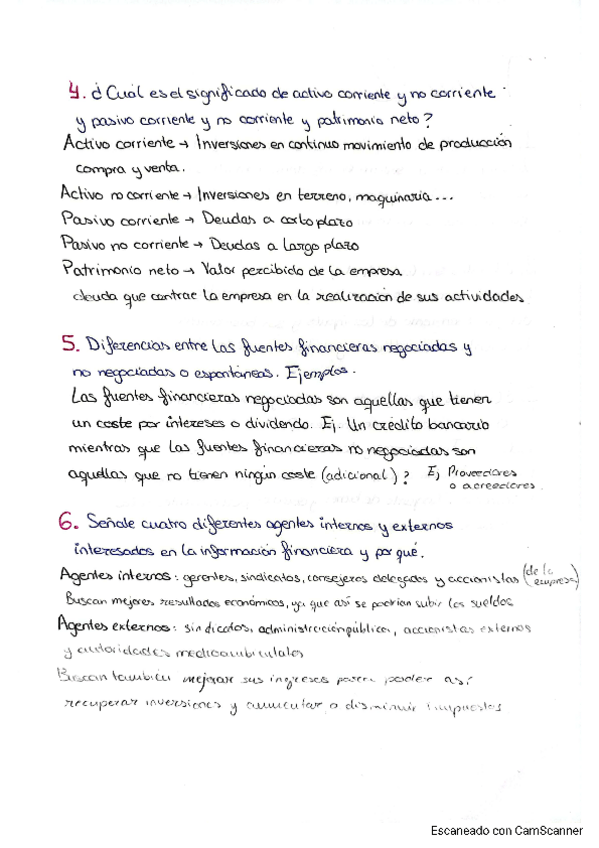 4. ¿Cuál es el significado de activo corriente y no corriente
y pasivo corriente y no corriente y patrimonio neto?
Activo corriente → Inversiones en continuo movimiento de producción
compra y venta.
Activo no corriente → Inversiones en terreno, maquinaria...
Pasivo corriente → Deudas a corto plazo
Pasivo no corriente → Deudas a largo plazo
Patrimonio neto → Valor percibido de la empresa
deuda que contrae la empresa en la realización de sus actividades
5. Diferencias entre las fuentes financieras negociadas y
no negociadas o espontáneas. Ejemplos.
Las fuentes financieras negociadas son aquellas que tienen
un coste por intereses o dividendo. Ej. Un crédito bancario
mientras que las fuentes financieras no negociadas son
aquellas que no tienen ningún coste (adicional)? Ej Proveedores
o acreedores.
6. Señale cuatro diferentes agentes internos y externos
interesados en la información financiera y por qué.
Agentes internos: gerentes, sindicatos, consejeros delegados y accionistas (de la
empresa)
Buscan mejores resultados económicos, ya que así se podrían subir los sueldos
Agentes externos: sindicatos, administración pública, accionistas externos
y autoridades medioambientales
Buscan también mejorar sus ingresos para poder así
recuperar inversiones y aumentar o disminuir impuestos
Escaneado con CamScanner